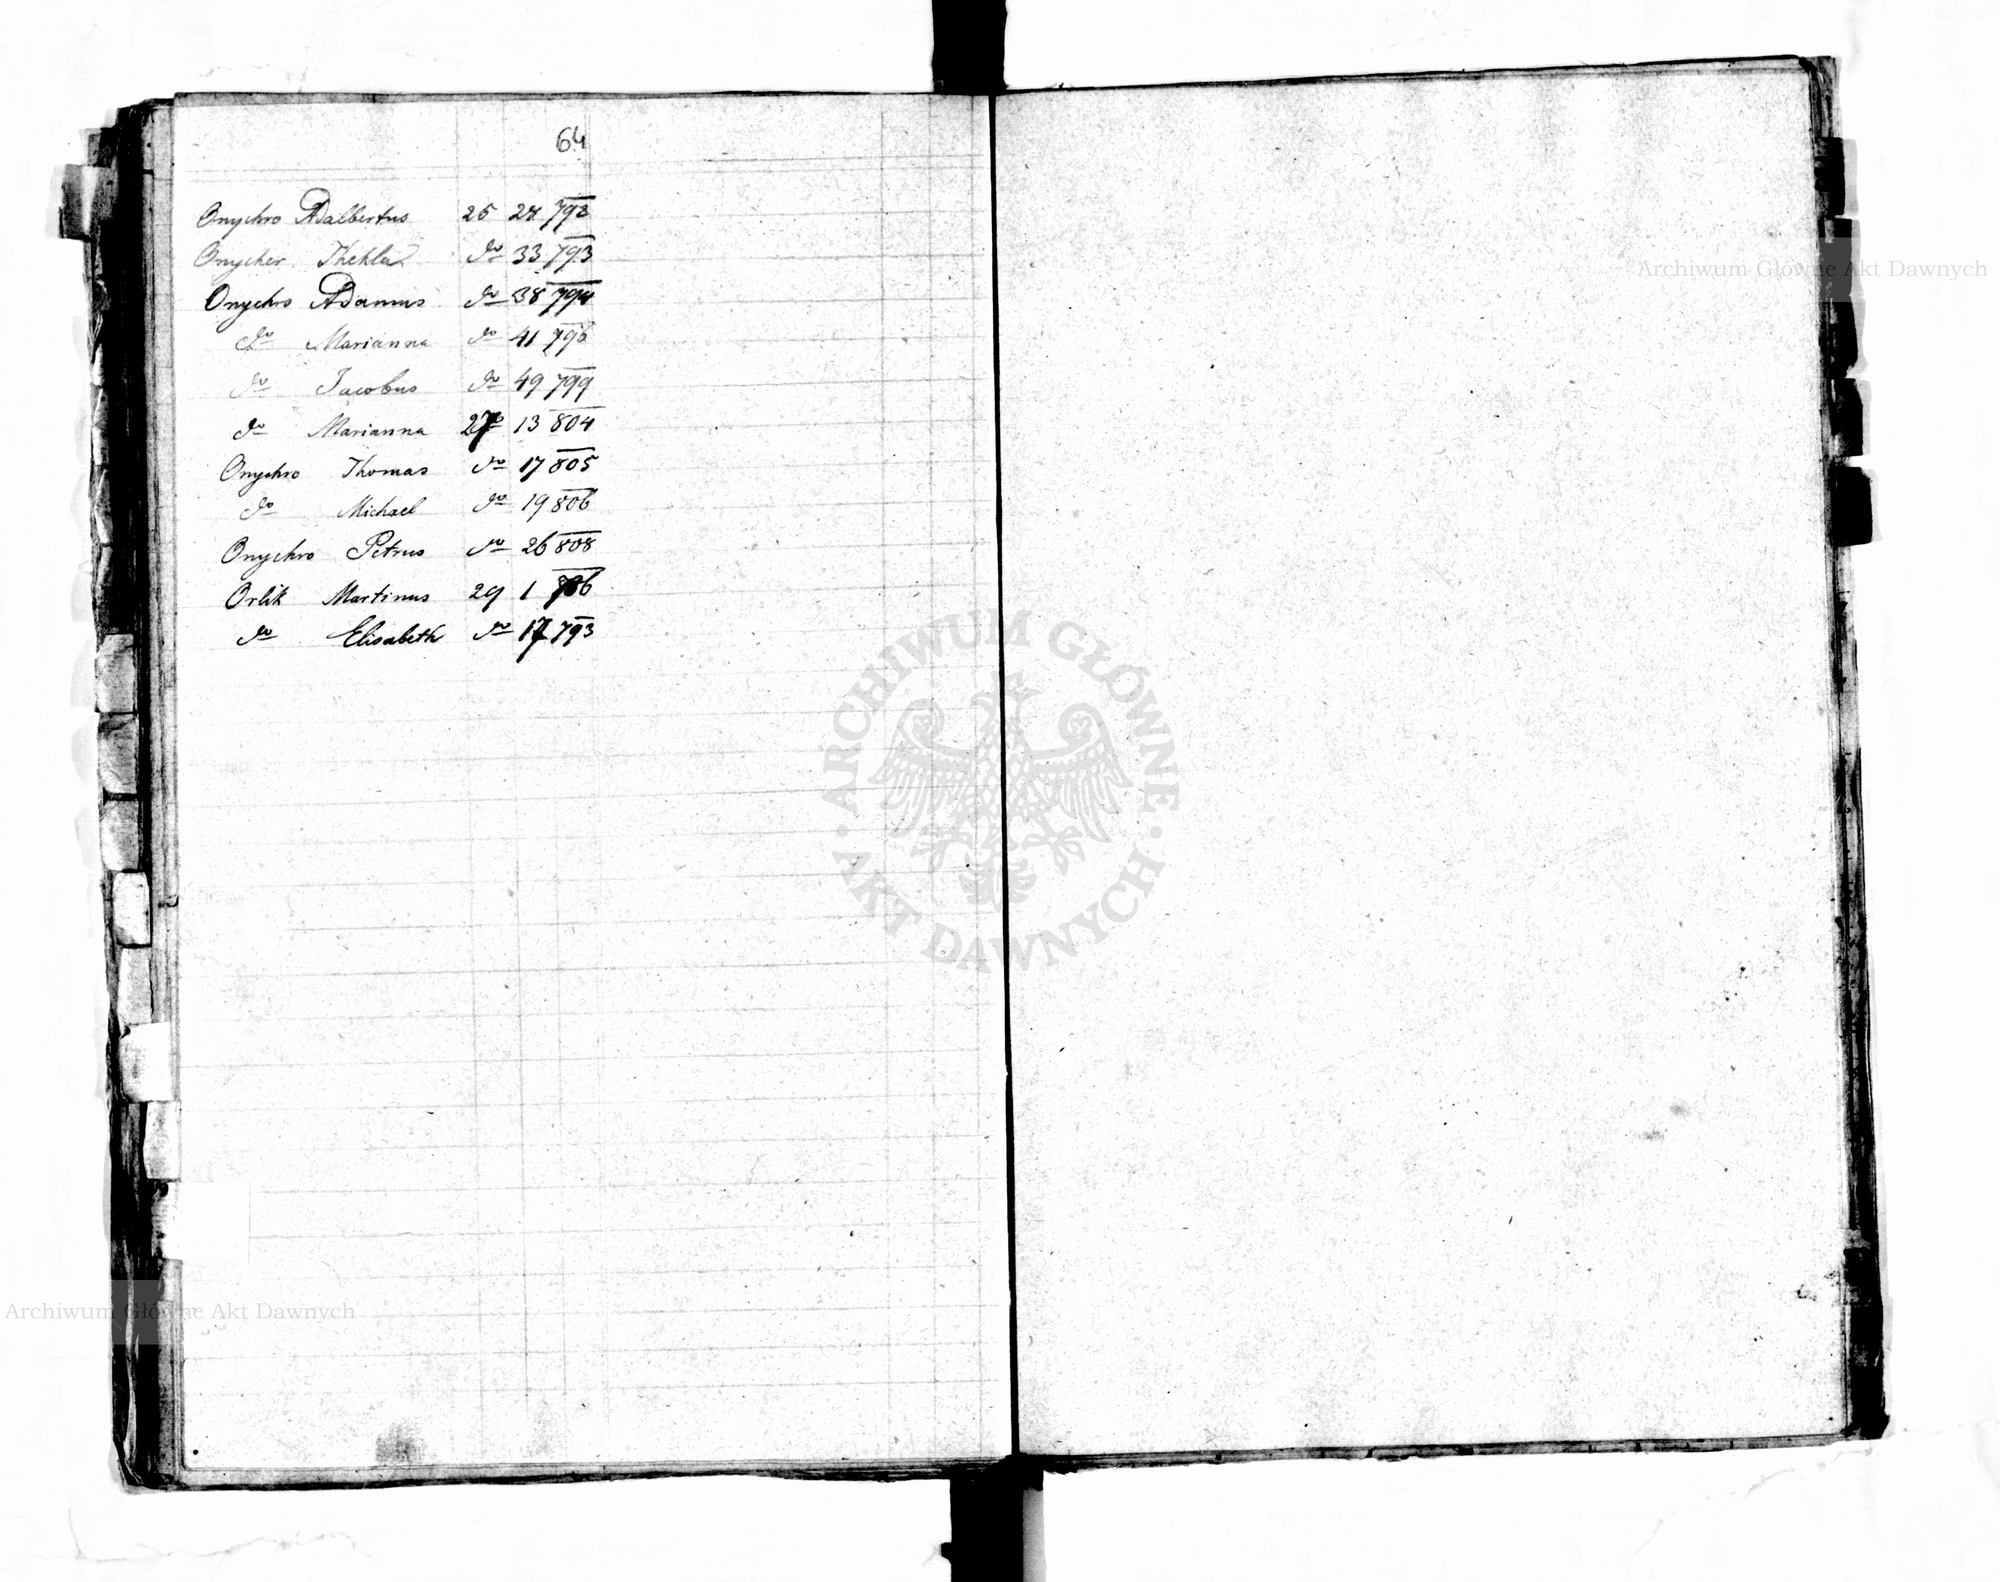 64
Onychro Adalbertus 25 28 792
Onycher Thekla do 33 793
Onychro Adamus do 38 794
do Marianna do 41 796
do Jacobus do 49 799
do Marianna 27 13 804
Onychro Thomas do 17 805
do Michael do 19 806
Onychro Petrus do 26 808
Orlik Martinus 29 1 786
do Elisabeth do 17 793
Archiwum Główne Akt Dawnych
ARCHIWUM GŁÓWNE
· AKT DAWNYCH ·
Archiwum Główne Akt Dawnych